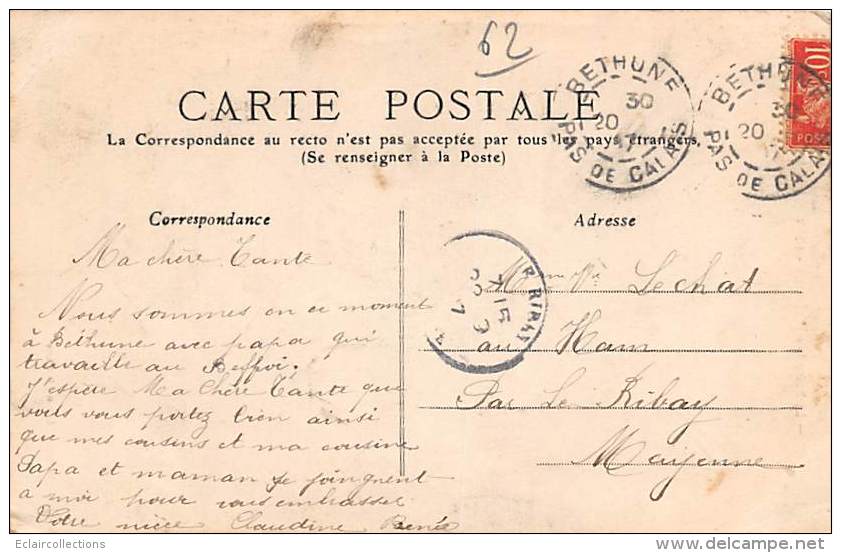 62
BETHUNE
30
20
PAS DE CALAIS
BETHUNE
30
20
PAS DE CALAIS
10c
POST
CARTE POSTALE
La Correspondance au recto n'est pas acceptée par tous les pays étrangers.
(Se renseigner à la Poste)
Correspondance
Adresse
Ma chère Tante
Nous sommes en ce moment
à Béthune avec papa qui
travaille au Beffroi.
J'espère Ma Chère Tante que
vous vous portez bien ainsi
que mes cousins et ma cousine
Papa et maman se joingnent
a moi pour vous embrasser
Votre nièce Claudine Renée
Mme Ve Lechat
au Ham
Par Le Ribay
Mayenne
Eclaircollections
www.delcampe.net